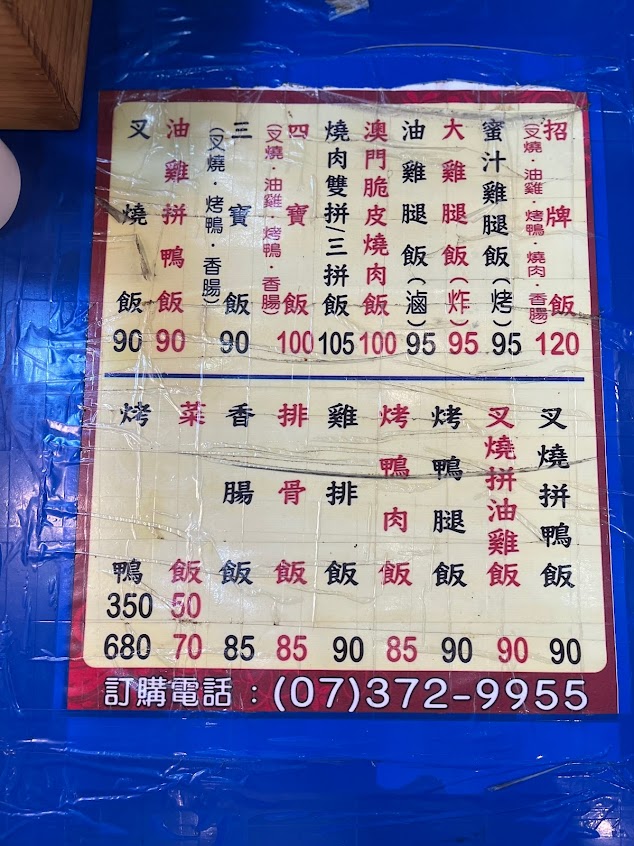 招牌飯(叉燒·油雞·烤鴨·燒肉·香腸)120
蜜汁雞腿飯(烤)95
大雞腿飯(炸)95
油雞腿飯(滷)95
澳門脆皮燒肉飯100
燒肉雙拼/三拼飯105
四寶飯(叉燒·油雞·烤鴨·香腸)100
三寶飯(叉燒·烤鴨·香腸)90
油雞拼鴨飯90
叉燒飯90
叉燒拼鴨飯90
叉燒拼油雞飯90
烤鴨腿飯90
烤鴨肉飯85
雞排飯90
排骨飯85
香腸飯85
菜飯50 70
烤鴨350 680
訂購電話:(07)372-9955